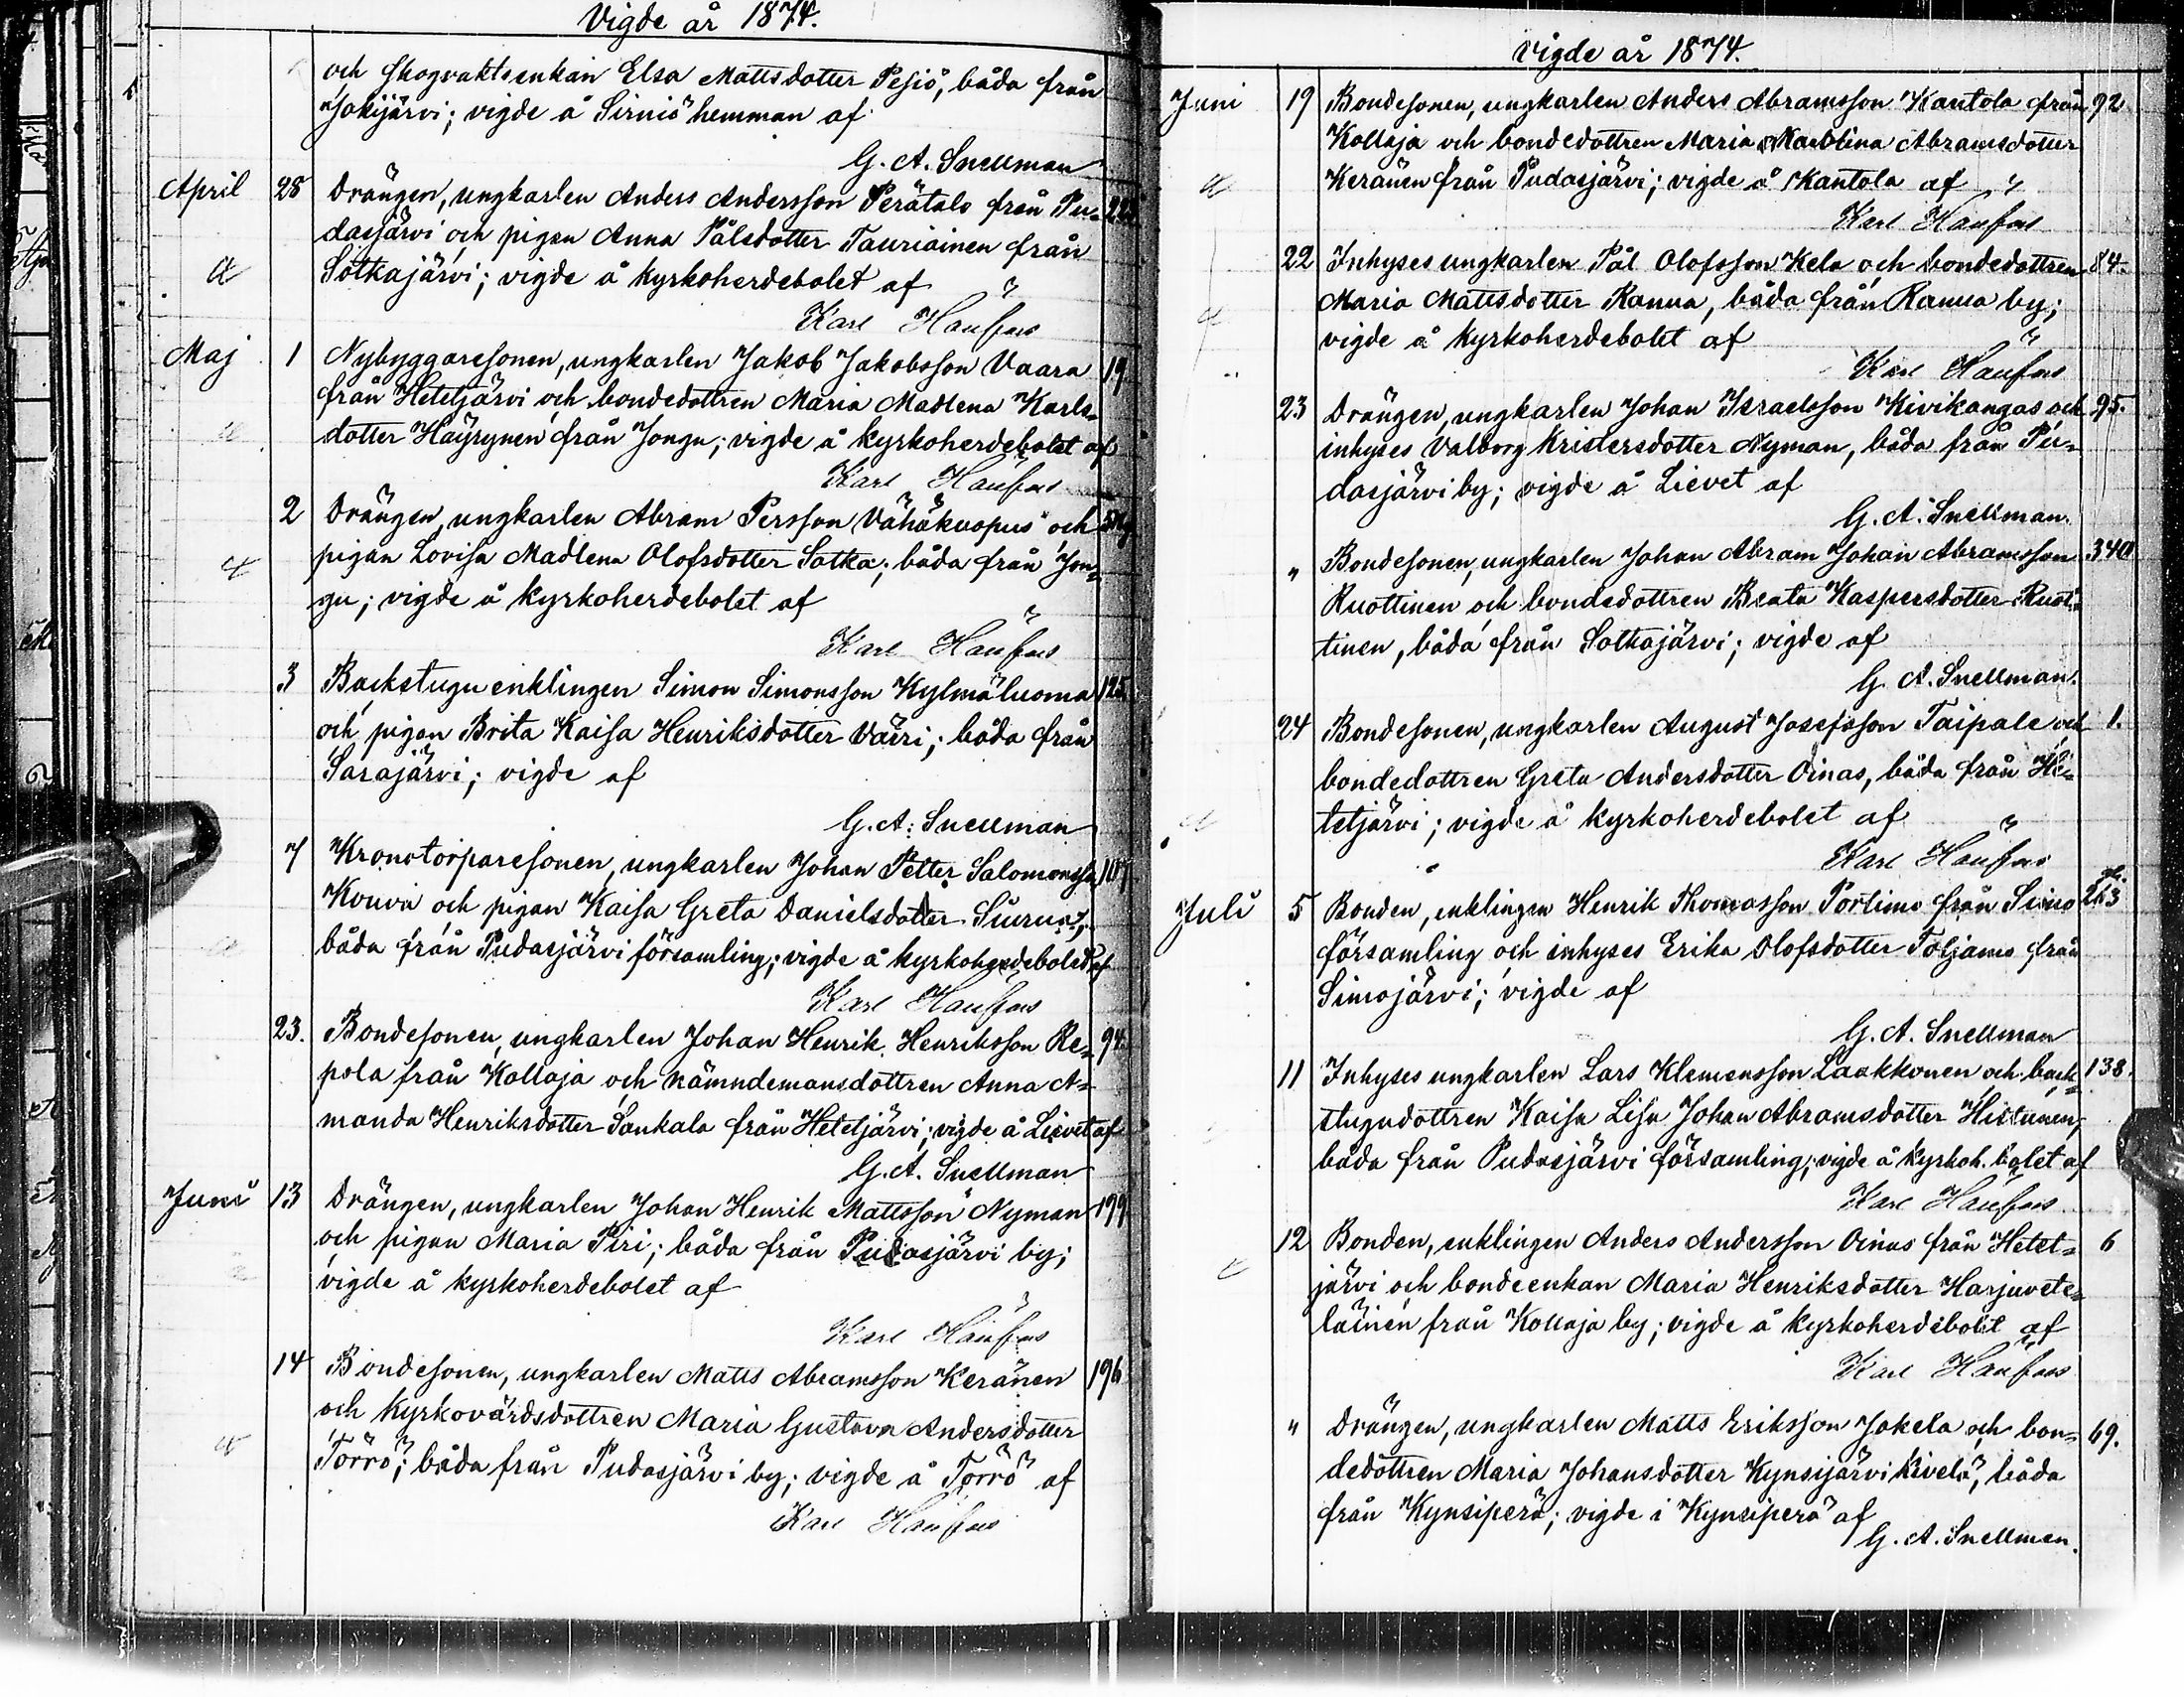 Vigde år 1874.
och skogvaktsenkan Elsa Mattsdotter Pesiö, båda från
Jokijärvi; vigde å Sirniö hemman af
G. A. Snellman
April 28 Drängen, ungkarlen Anders Andersson Perätalo från Pu-
dasjärvi och pigan Anna Pålsdotter Tauriainen från
Sotkajärvi; vigde å kyrkoherdebolet af
Karl
Maj 1 Nybyggaresonen, ungkarlen Jakob Jakobsson Vaara 19.
från Hetetjärvi och bondedottren Maria Madlena Karls-
dotter Häyrynen från Jongu; vigde å kyrkoherdebolet af
Karl
2 Drängen, ungkarlen Abram Persson Vähäkuopus och
pigan Lovisa Madlena Olofsdotter Sotka; båda från Jon-
gu; vigde å kyrkoherdebolet af
Karl
3 Backstuguenklingen Simon Simonsson Kylmäluoma 125
och pigan Brita Kaisa Henriksdotter Värri; båda från
Sarajärvi; vigde af
G. A. Snellman
7 Kronotorparesonen, ungkarlen Johan Petter Salomonsson 107
Kouva och pigan Kaisa Greta Danielsdotter
båda från Pudasjärvi församling; vigde å kyrkoherdebolet af
Karl
23. Bondesonen, ungkarlen Johan Henrik Henriksson Re- 94.
pola från Kollaja och nämndemansdottren Anna A-
manda Henriksdotter Sankala från Hetetjärvi; vigde å Lievet af
G. A. Snellman
Juni 13 Drängen, ungkarlen Johan Henrik Mattsson Nyman 199
och pigan Maria Piri; båda från Pudasjärvi by;
vigde å kyrkoherdebolet af
Karl
14 Bondesonen, ungkarlen Matts Abramsson Keränen 196
och kyrkovärdsdottren Maria Gustava Andersdotter
Törrö; båda från Pudasjärvi by; vigde å Törrö af
Karl
Vigde år 1874.
Juni 19 Bondesonen, ungkarlen Anders Abramsson Kantola från 92
Kollaja och bondedottren Maria Karolina Abramsdotter
Keränen från Pudasjärvi; vigde å Kantola af
Karl
22 Inhyses ungkarlen Pål Olofsson Kela och bondedottren 84.
Maria Mattsdotter Ranua, båda från Ranua by;
vigde å kyrkoherdebolet af
Karl
23 Drängen, ungkarlen Johan Israelsson Kivikangas och 95.
inhyses Valborg Kristersdotter Nyman, båda från Pu-
dasjärvi by; vigde å Lievet af
G. A. Snellman.
" Bondesonen, ungkarlen Johan Abram Johan Abramsson 340
Ruottinen och bondedottren Beata Kaspersdotter Ruot-
tinen, båda från Sotkajärvi; vigde af
G. A. Snellman.
24 Bondesonen, ungkarlen August Josefsson Taipale och 1.
bondedottren Greta Andersdotter Oinas, båda från He-
tetjärvi; vigde å kyrkoherdebolet af
Karl
Juli 5 Bonden, enklingen Henrik Thomasson Portimo från Simo
församling och inhyses Erika Olofsdotter Toljamo från
Simojärvi; vigde af
G. A. Snellman
11 Inhyses ungkarlen Lars Klemensson Laakkonen och back- 138.
stugudottren Kaisa Lisa Johan Abramsdotter Hiltunen;
båda från Pudasjärvi församling; vigde å kyrkoh. bolet af
Karl
12 Bonden, enklingen Anders Andersson Oinas från Hetet- 6
järvi och bondeenkan Maria Henriksdotter Harjuvete-
läinen från Kollaja by; vigde å kyrkoherdebolet af
Karl
" Drängen, ungkarlen Matts Eriksson Jokela och bon- 69.
dedottren Maria Johansdotter Kynsijärvi Kivelä, båda
från Kynsiperä; vigde i Kynsiperä af
G. A. Snellman.